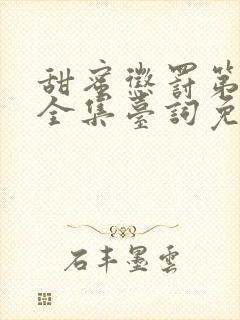 甜蜜懲罰第
全集臺詞免
石丰墨雲